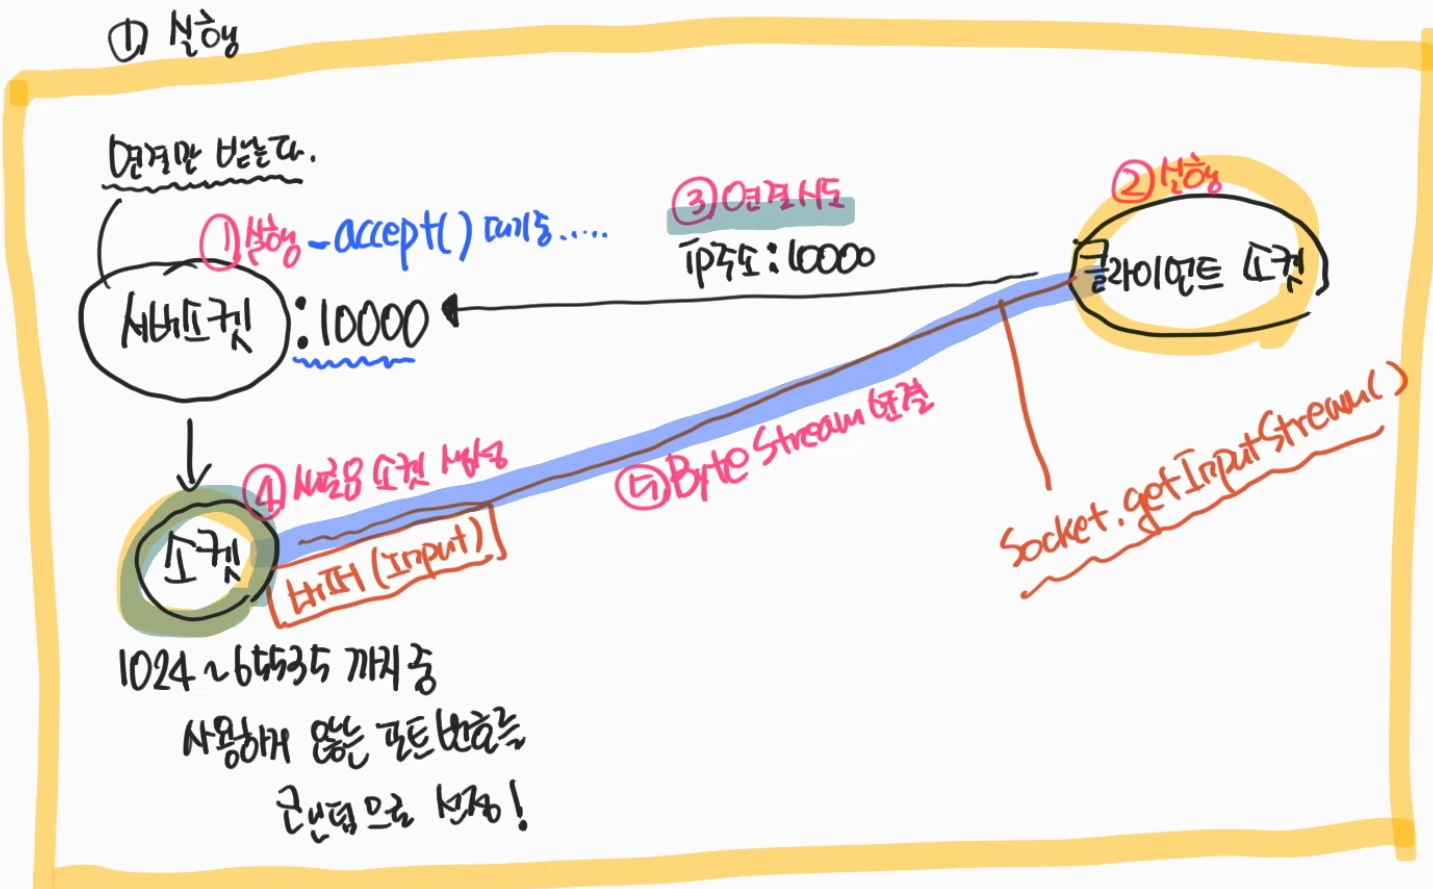 ① 실행
연결만 받는다.
① 실행 - accept() 대기중.....
서버소켓 :10000
③ 연결시도
ip주소:10000
② 실행
클라이언트 소켓
④ 새로운 소켓 생성
소켓
버퍼(Input)
⑤ Byte Stream 연결
Socket.getInputStream()
1024~65535 까지 중
사용하지 않는 포트번호를
랜덤으로 선정!